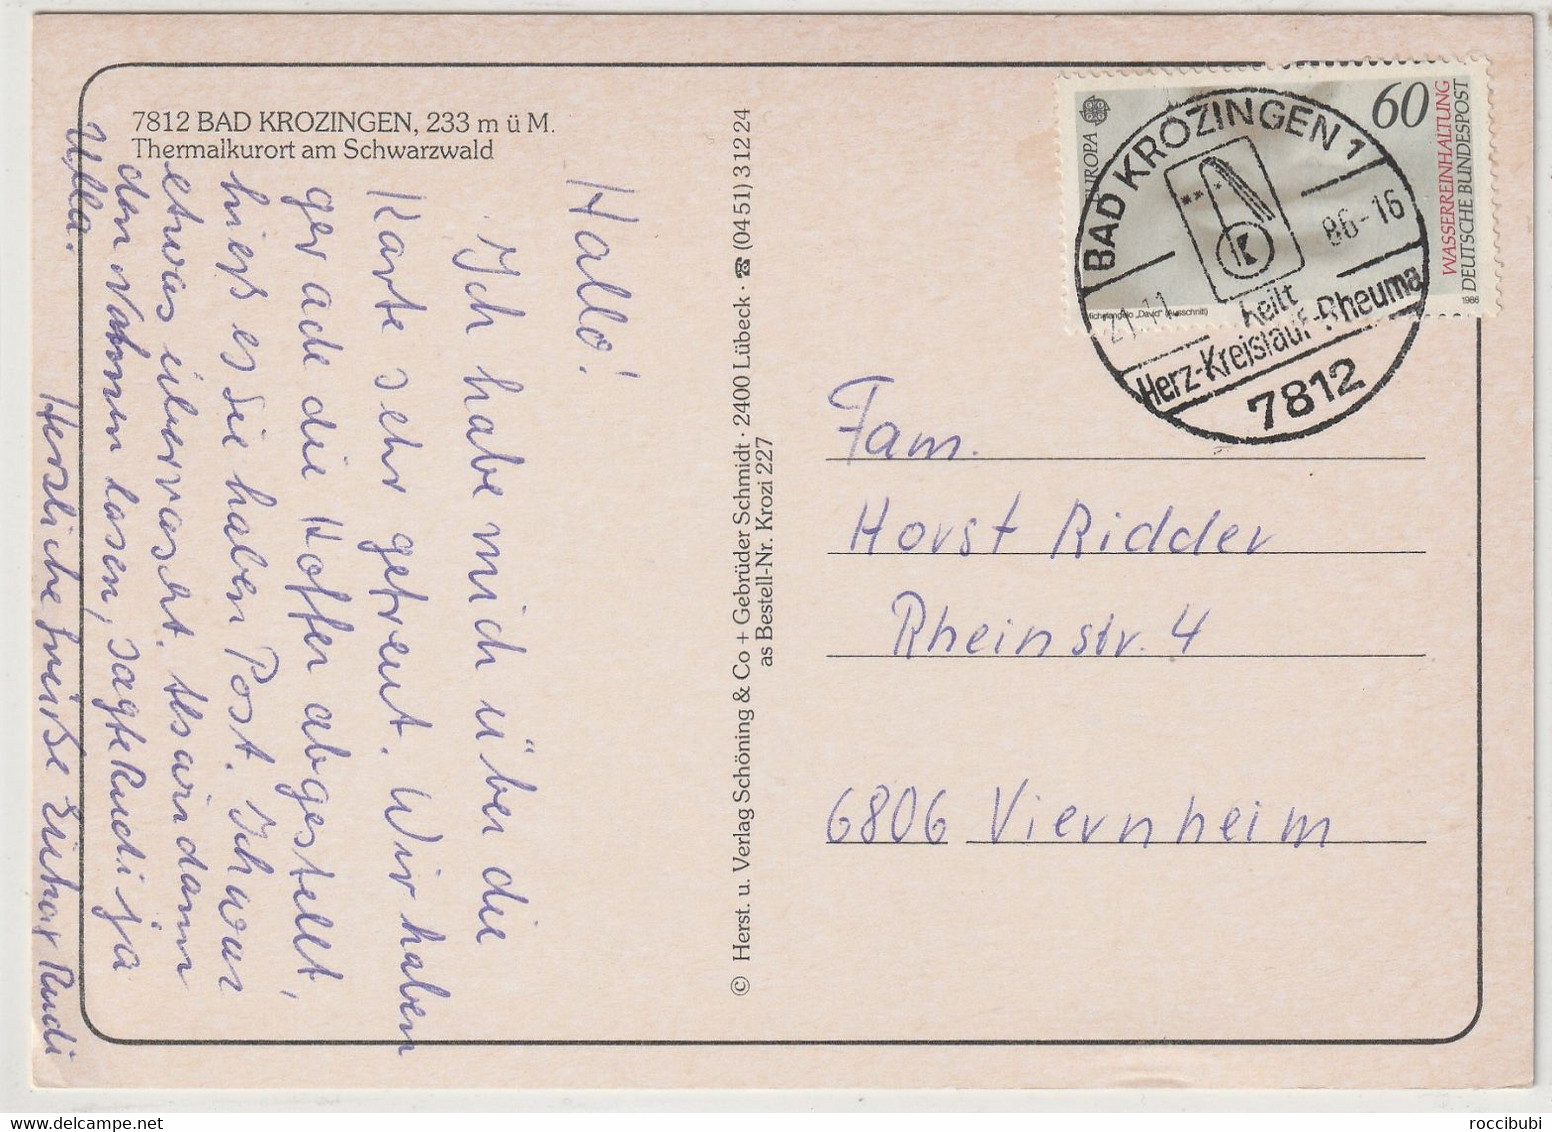 7812 BAD KROZINGEN, 233 m ü M.
Thermalkurort am Schwarzwald
Hallo!
Ich habe mich über die
Karte sehr gefreut. Wir haben
gerade die Koffer abgestellt,
hieß es Sie haben Post. Ich war
etwas überrascht. Als wir dann
den Namen lasen, sagte Rudi ja
Ulla.
Herzliche Grüße Euch Rudi
© Herst. u. Verlag Schöning & Co + Gebrüder Schmidt · 2400 Lübeck · ☎ (04 51) 3 12 24
as Bestell-Nr. Krozi 227
EUROPA
60
WASSERREINHALTUNG
DEUTSCHE BUNDESPOST
Michelangelo „David" (Ausschnitt)
1986
BAD KROZINGEN 1
21.11 86-16
heilt
Herz-Kreislauf-Rheuma
7812
Fam.
Horst Ridder
Rheinstr. 4
6806 Viernheim
roccibubi